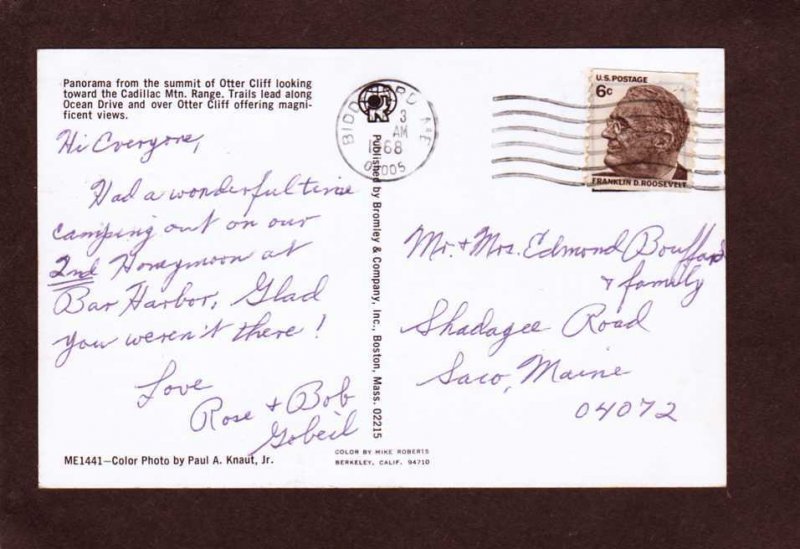 Panorama from the summit of Otter Cliff looking
toward the Cadillac Mtn. Range. Trails lead along
Ocean Drive and over Otter Cliff offering magni-
ficent views.
Hi Everyone,
Had a wonderful time
camping out on our
2nd Honeymoon at
Bar Harbor, Glad
you weren't there!
Love
Rose + Bob
Gobeil
ME1441—Color Photo by Paul A. Knaut, Jr.
Published by Bromley & Company, Inc., Boston, Mass. 02215
COLOR BY MIKE ROBERTS
BERKELEY, CALIF. 94710
3
AM
1968
U.S. POSTAGE
6c
FRANKLIN D. ROOSEVELT
Mr. + Mrs. Edmond Bouffard
+ family
Shadagee Road
Saco, Maine
04072